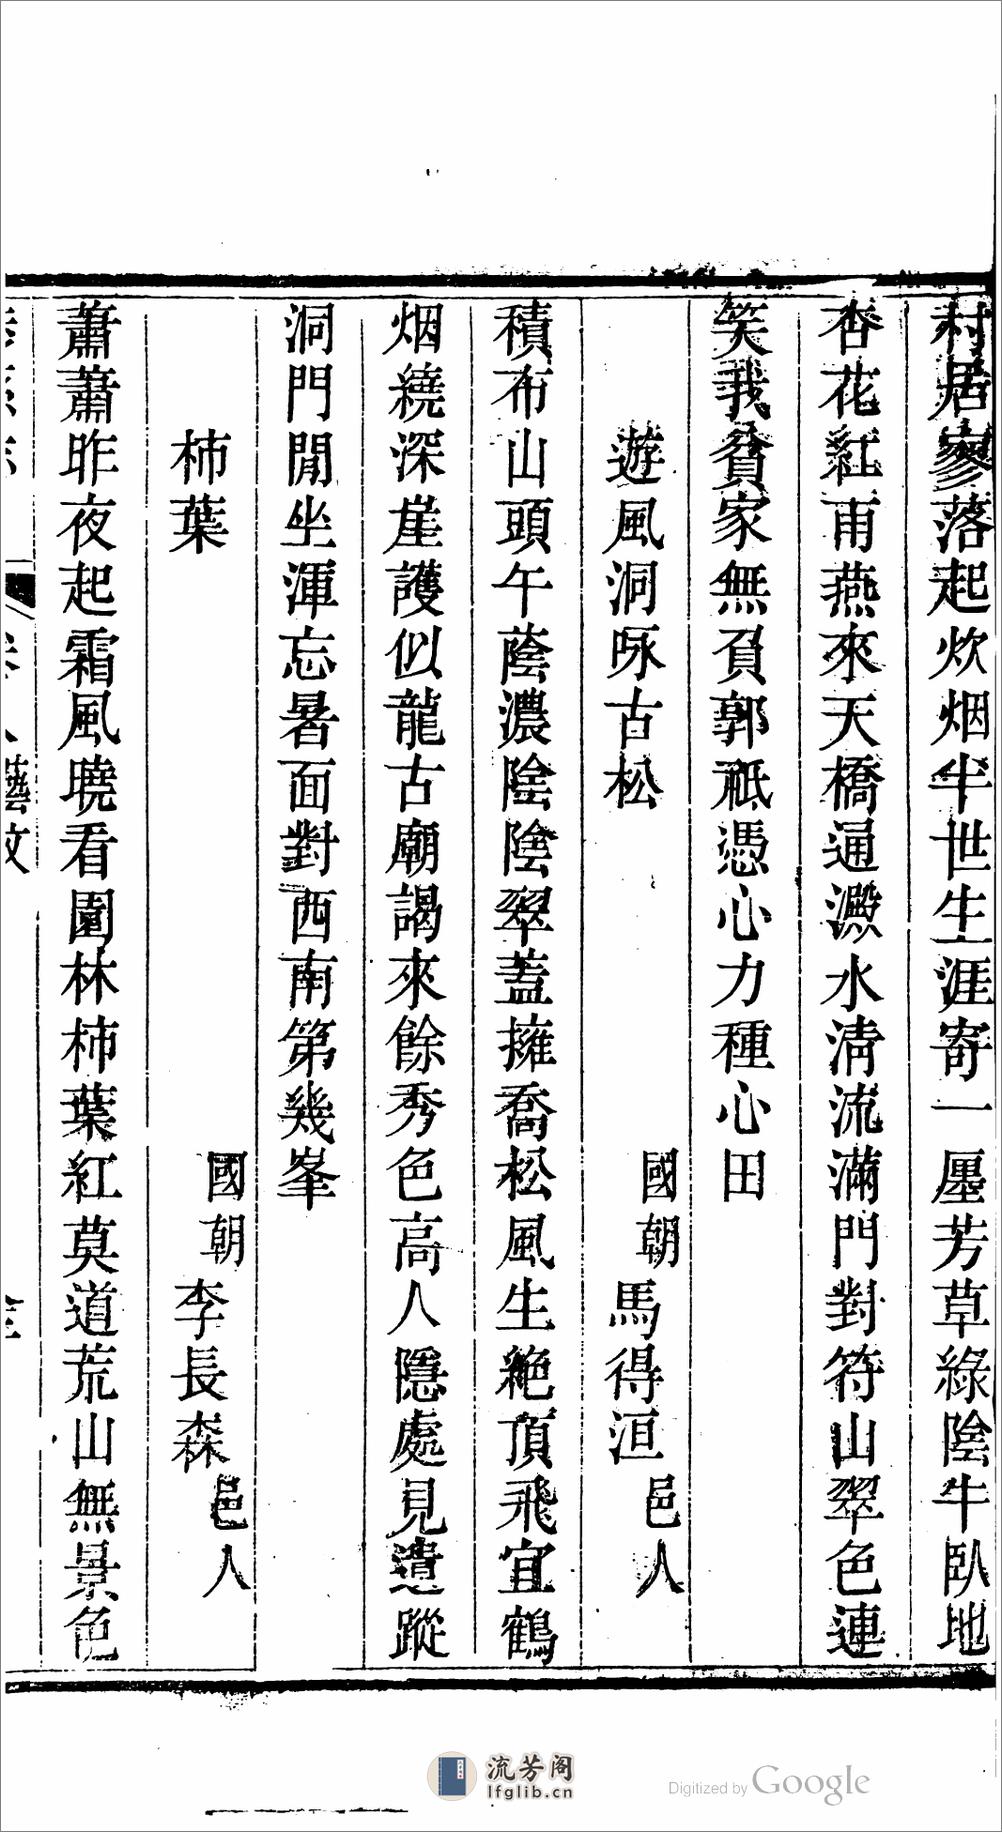 村居寥落起炊烟半世生涯寄一廛芳草綠陰牛臥地
杏花紅雨燕來天橋通澱水清流滿門對符山翠色連
笑我貧家無負郭祗憑心力種心田
遊風洞咏古松 國朝馬得洹邑人
積布山頭午蔭濃陰陰翠蓋擁喬松風生絕頂飛宜鶴
烟繞深崖護似龍古廟謁來餘秀色高人隱處見遺蹤
洞門閒坐渾忘暑面對西南第幾峯
柿葉 國朝李長森邑人
蕭蕭昨夜起霜風曉看園林柿葉紅莫道荒山無景色
藝文
流芳阁
lfglib.cn
Digitized by Google